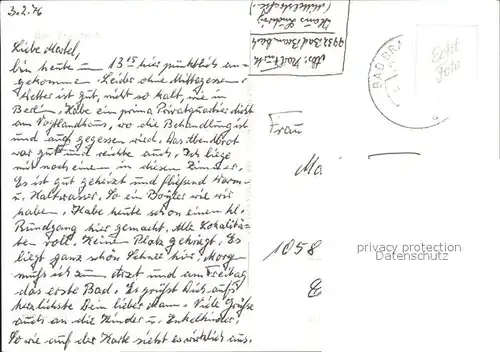 3.2.76
Liebe Mordel,
bin heute um 13 15 hier pünktlich an-
gekommen. Leider ohne Mittagessen.
Wetter ist gut, nicht so kalt, wie in
Berlin. Habe ein prima Privatquartier dicht
am Vogtlandhaus, wo die Behandlung ist
und auch gegessen wird. Das Abendbrot
war gut und reichte auch. Ich liege
mit noch einem in diesen Zimmer.
Es ist gut geheizt und fließend Warm-
u. Kaltwasser. So ein Boyler wie wir
haben. Habe heute schon einen kl.
Rundgang hier gemacht. Alle Lokalitä-
ten voll. Keinen Platz gekriegt. Es
liegt ganz schön Schnee hier. Morgen
muß ich zum Arzt und am Freitag
das erste Bad. Es grüßt Dich aufs
herzlichste Dein lieber Mann. Viele Grüße
auch an die Kinder u. Enkelkinder.
So wie auf der Karte sieht es wirklich aus.
Abs:
9932 Bad Brambach
BAD BRA
Echt
Foto
Frau
Ma
1058
privacy protection